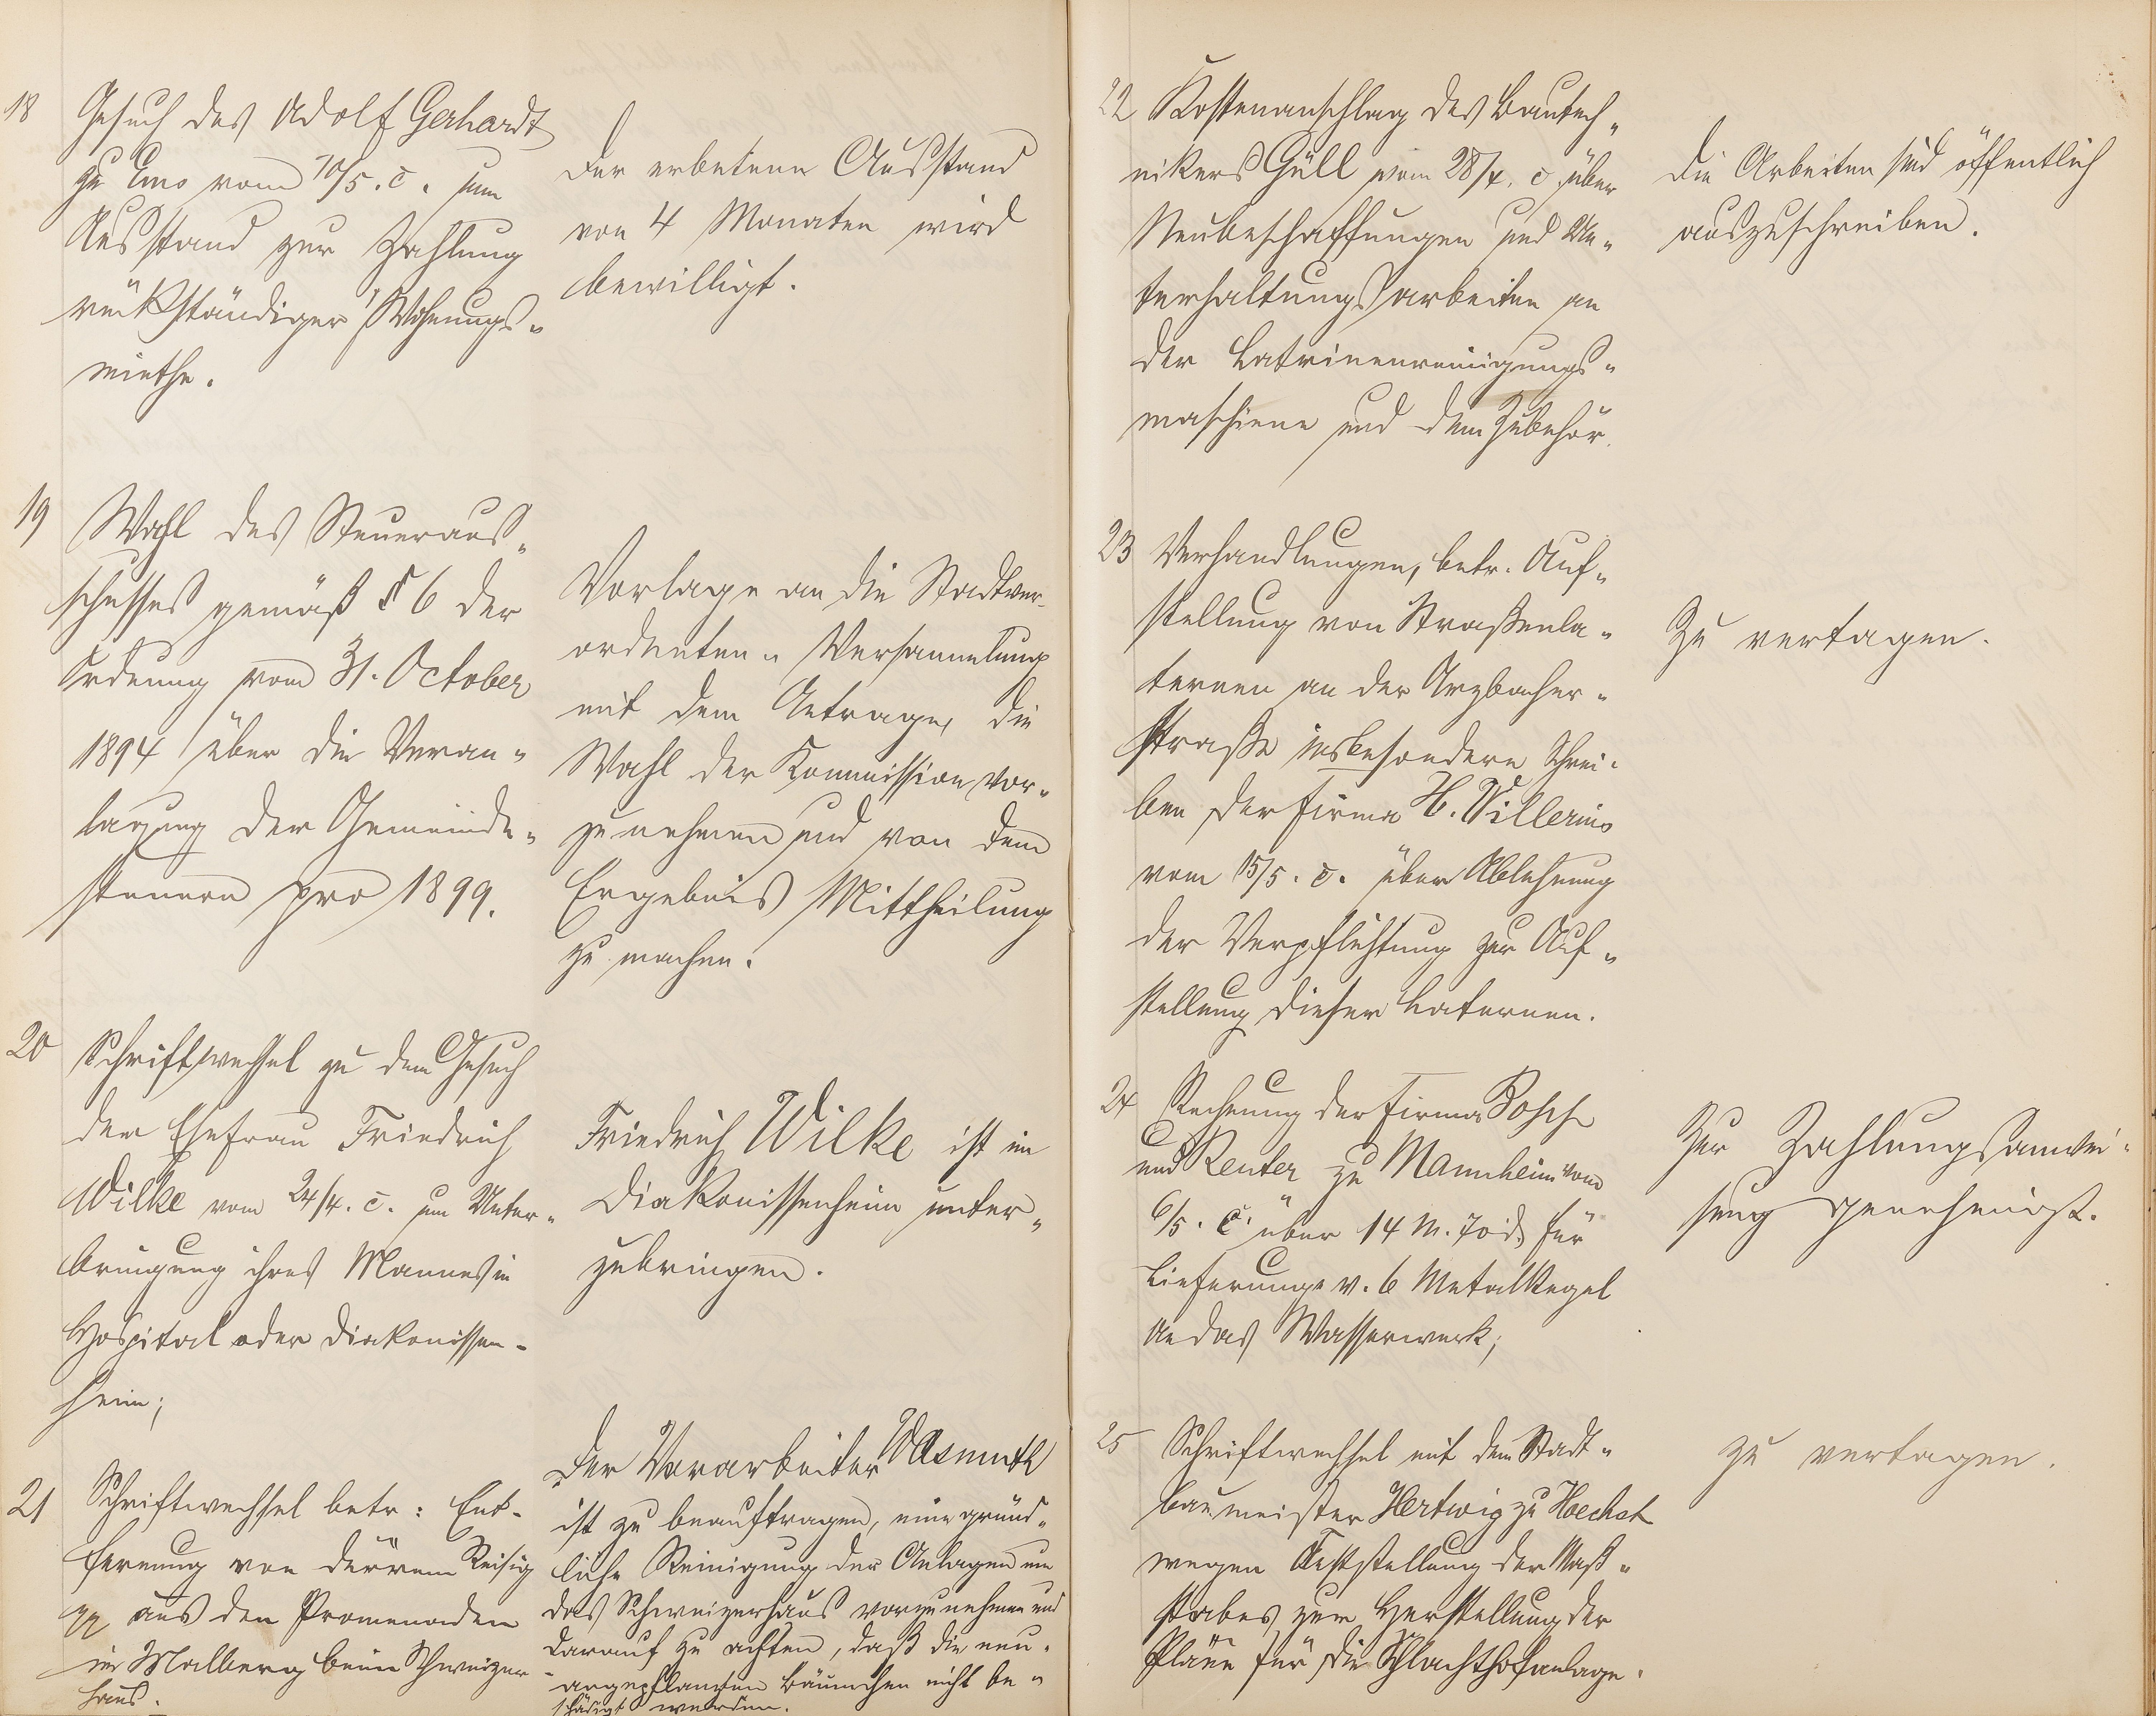 18 Gesuch des Adolf Gerhardt
zu Ems vom 10/5. c. um
Ausstand zur Zahlung
rückständiger Wohnungs-
miethe.
Der erbetene Ausstand
von 4 Monaten wird
bewilligt.
19 Wahl des Steueraus-
schusses gemäß § 6 der
Ordnung vom 31. October
1894 über die Veran-
lagung der Gemeinde-
steuern pro 1899.
Vorlage an die Stadtver-
ordneten-Versammlung
mit dem Antrage, die
Wahl der Kommission vor-
zunehmen und von dem
Ergebnis Mittheilung
zu machen.
20 Schriftwechsel zu dem Gesuch
der Ehefrau Friedrich
Wilke vom 24/4. c. um Unter-
bringung ihres Mannes in
Hospital oder Diakonissen-
heim;
Friedrich Wilke ist im
Diakonissenheim unter-
zubringen.
21 Schriftwechsel betr: Ent-
fernung von dürrem Reisig
pp aus den Promenaden
im Malberg beim Schweizer
haus.
Der Vorarbeiter Wasmuth
ist zu beauftragen, eine gründ-
liche Reinigung der Anlagen um
das Schweizerhaus vorzunehmen und
darauf zu achten, daß die neu-
angepflanzten Bäumchen nicht be-
schädigt werden.
22 Kostenanschlag des Bautech-
nikers Güll vom 28/4. c. über
Neubeschaffungen und Un-
terhaltungsarbeiten an
der Latrinenreinigungs-
maschiene und dem Zubehör.
Die Arbeiten sind öffentlich
auszuschreiben.
23 Verhandlungen, betr. Auf-
stellung von Straßenla-
ternen an der Arzbacher-
straße insbesondere Schrei-
ben der Firma H. Willerius
vom 15/5. c. über Ablehnung
der Verpflichtung zur Auf-
stellung dieser Laternen.
Zu vertagen.
24 Rechnung der Firma Bosch
und Reuter zu Mannheim vom
6/5. c. über 14 M. 70 d. für
Lieferung v. 6 Metallkegel
an das Wasserwerk;
Zur Zahlungsanwei-
sung genehmigt.
25 Schriftwechsel mit dem Stadt-
baumeister Hertwig zu Hoechst
wegen Feststellung des Maß-
stabes zur Herstellung der
Pläne für die Schlachthofanlage.
zu vertagen.